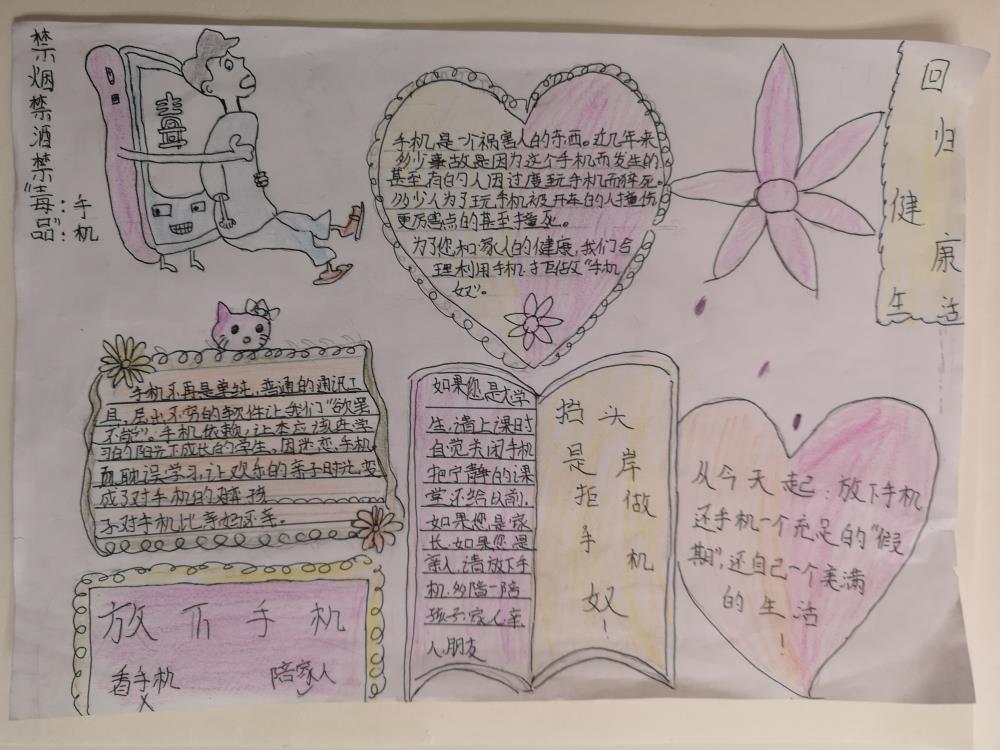 禁烟禁酒禁"毒品":手机
喜
手机,是一个祸害人的东西。近几年来
多少事故是因为这个手机而发生的
甚至有的人因过度玩手机而猝死。
多少人为了玩手机被开车的人撞伤
更厉害点的甚至撞死。
为了您和家人的健康,我们合
理利用手机.拒做"手机
奴"。
回归
健康
生活
手机不再是单纯,普通的通讯工
具,层出不穷的软件让我们"欲罢
不能"。手机依赖,让本应该在学
习的阳光下成长的学生,因迷恋手机
而耽误学习,让欢乐的亲子时光变
成了对手机的
子对手机比亲妈还亲。
如果您是大学
生,请上课时
自觉关闭手机
把宁静的课
堂还给以前.
如果您是家
长.如果您是
亲人,请放下手
机.多陪一陪
孩子.家人.亲
人.朋友
抬头
是岸
拒做
手机
奴!
从今天起:放下手机
还手机一个充足的"假
期",还自己一个美满
的生活
!
放下手机
看手机 陪家人
X ✓